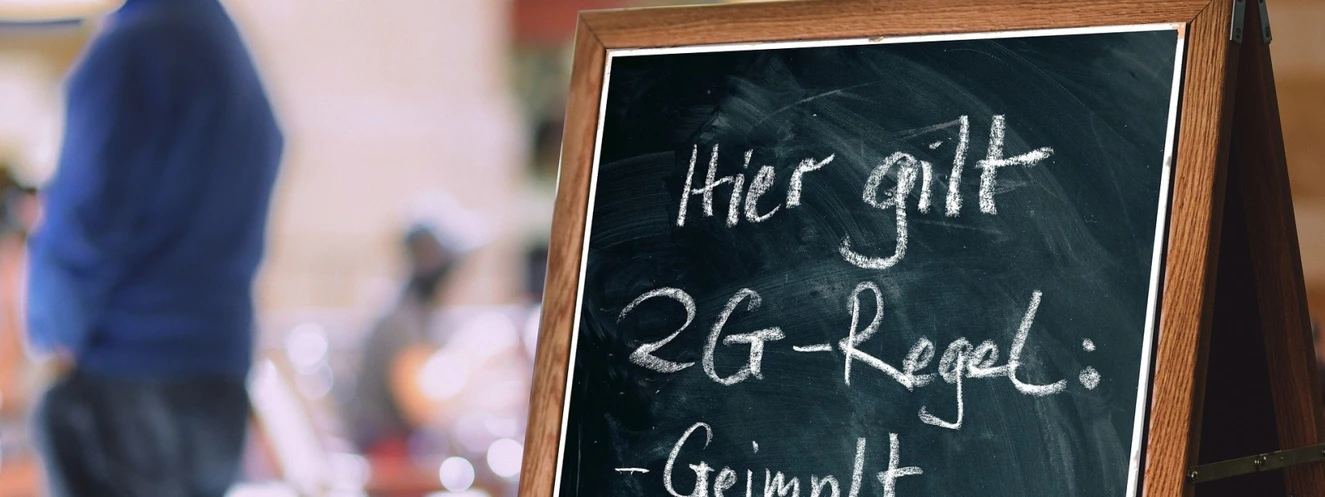 Hier gilt
2G-Regel:
- Geimpft